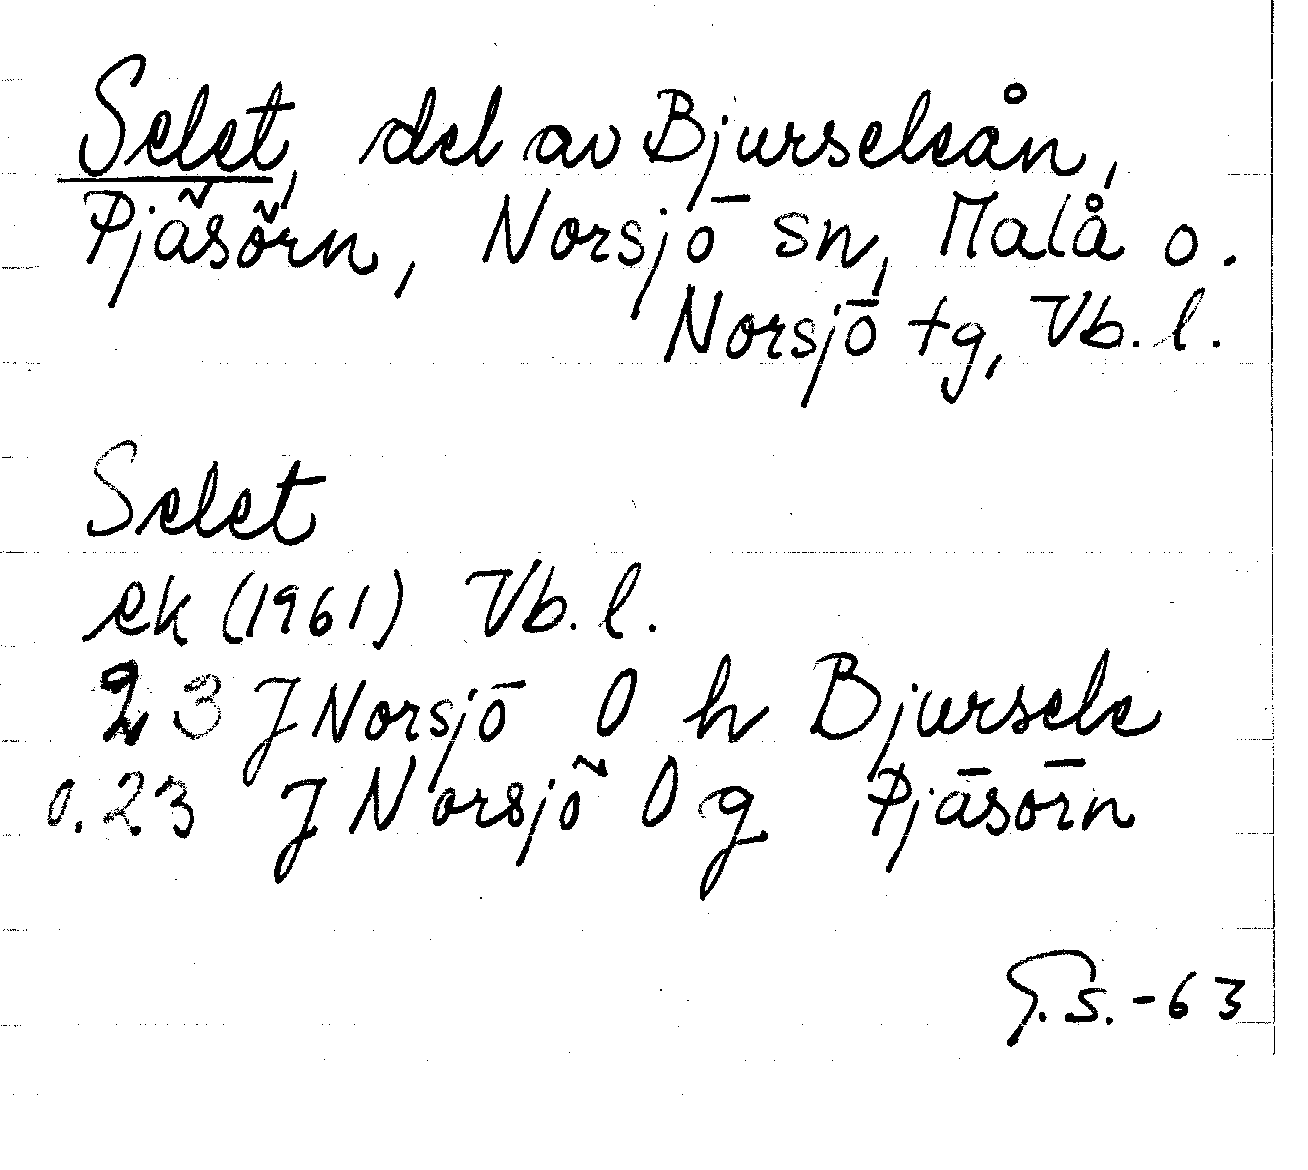 Selet, del av Bjurseleån,
Pjäsörn, Norsjö sn, Malå o.
Norsjö tg, Vb. l.
Selet
ek (1961) Vb. l.
23 J Norsjö 0 h Bjursele
o. 23 J Norsjö 0 g Pjäsörn
G.S. -63